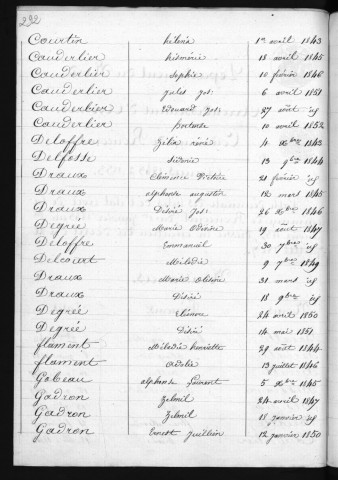 292
Courtin hélène 1er avril 1843
Cauderlier 18 avril 1845
Cauderlier Sophie 10 février 1846
Cauderlier jules jos: 6 avril 1851
Cauderlier Edouard jos: 27 août id
Cauderlier 10 avril 1852
Deloffre félix réné 4 xbre 1843
Delfosse Sidonie 13 9bre 1844
Draux Clémence 21 février id
Draux alphonse augustin 12 mars 1845
Draux Désiré Jos: 26 xbre 1846
Degrée Marie 19 août 1847
Deloffre Emmanuel 30 7bre id
Delcourt Méladie 9 7bre 1849
Draux Marie 31 mars id
Draux Désiré 18 9bre id
Degrée Etienne 24 août 1850
Degrée Désiré 14 mai 1851
flament Méladie henriette 29 août 1844
flament ordelie 13 juillet 1846
Gobeau alphonse Laurent 5 xbre 1845
Gadron Zélmil 24 avril 1847
Gadron Zélmil 18 janvier id
Gadron Ernest juillien 12 janvier 1850